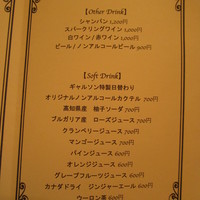 【Other Drink】
シャンパン 1,200円
スパークリングワイン 1,000円
白ワイン / 赤ワイン 1,000円
ビール / ノンアルコールビール 900円
【Soft Drink】
ギャルソン特製日替わり
オリジナルノンアルコールカクテル 700円
高知県産 柚子ソーダ 700円
ブルガリア産 ローズジュース 700円
クランベリージュース 700円
マンゴージュース 700円
パインジュース 600円
オレンジジュース 600円
グレープフルーツジュース 600円
カナダドライ ジンジャーエール 600円
ウーロン茶 600円